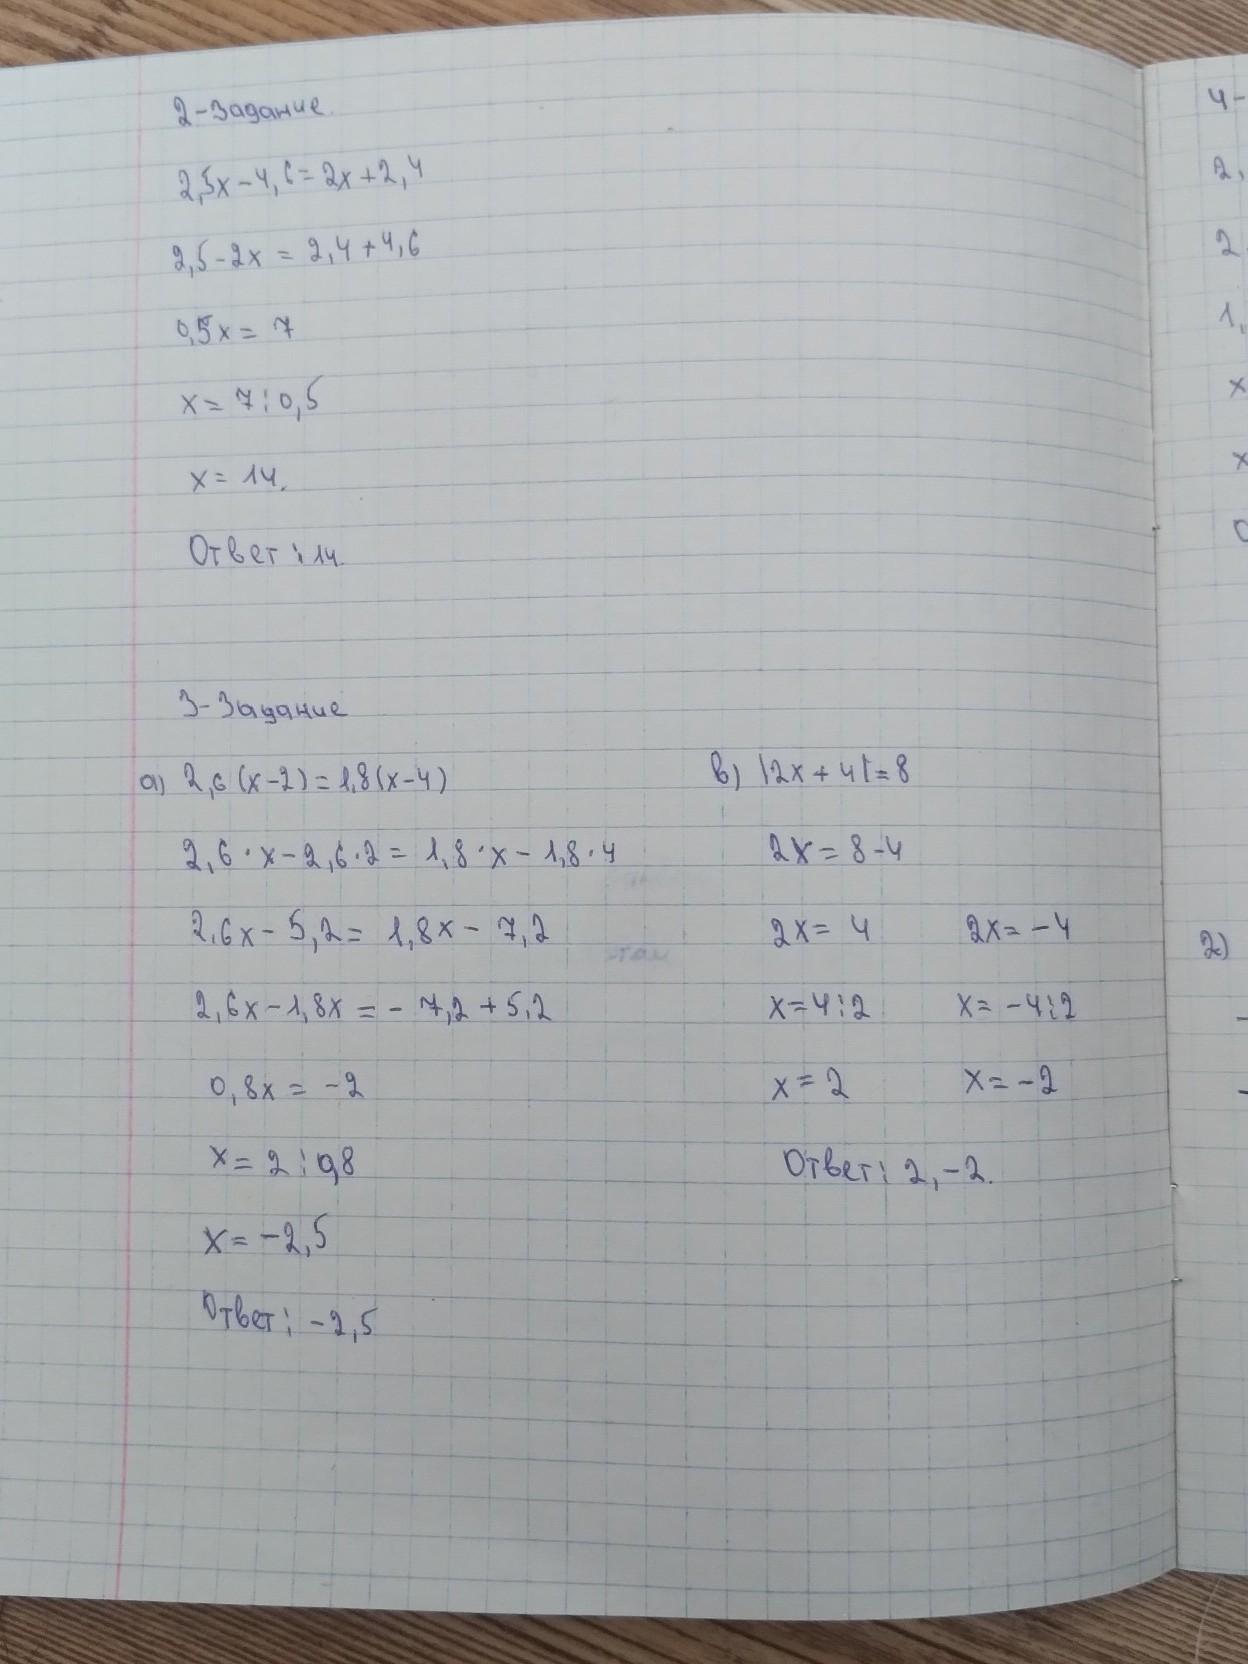 2-Задание.
2,5x-4,6=2x+2,4
2,5-2x = 2,4+4,6
0,5x= 7
x= 7:0,5
x= 14.
Ответ:14.
3-Задание
а) 2,6(x-2)=1,8(x-4)
2,6·x-2,6·2= 1,8·x-1,8·4
2,6x-5,2= 1,8x- 7,2
2,6x-1,8x = - 7,2+5,2
0,8x= -2
x= 2:0,8
x= -2,5
Ответ: -2,5
в) |2x+4|=8
2x=8-4
2x= 4 2x= -4
x=4:2 x= -4:2
x= 2 x= -2
Ответ: 2,-2.
4-
2,
2
1,
x
x
О
2)